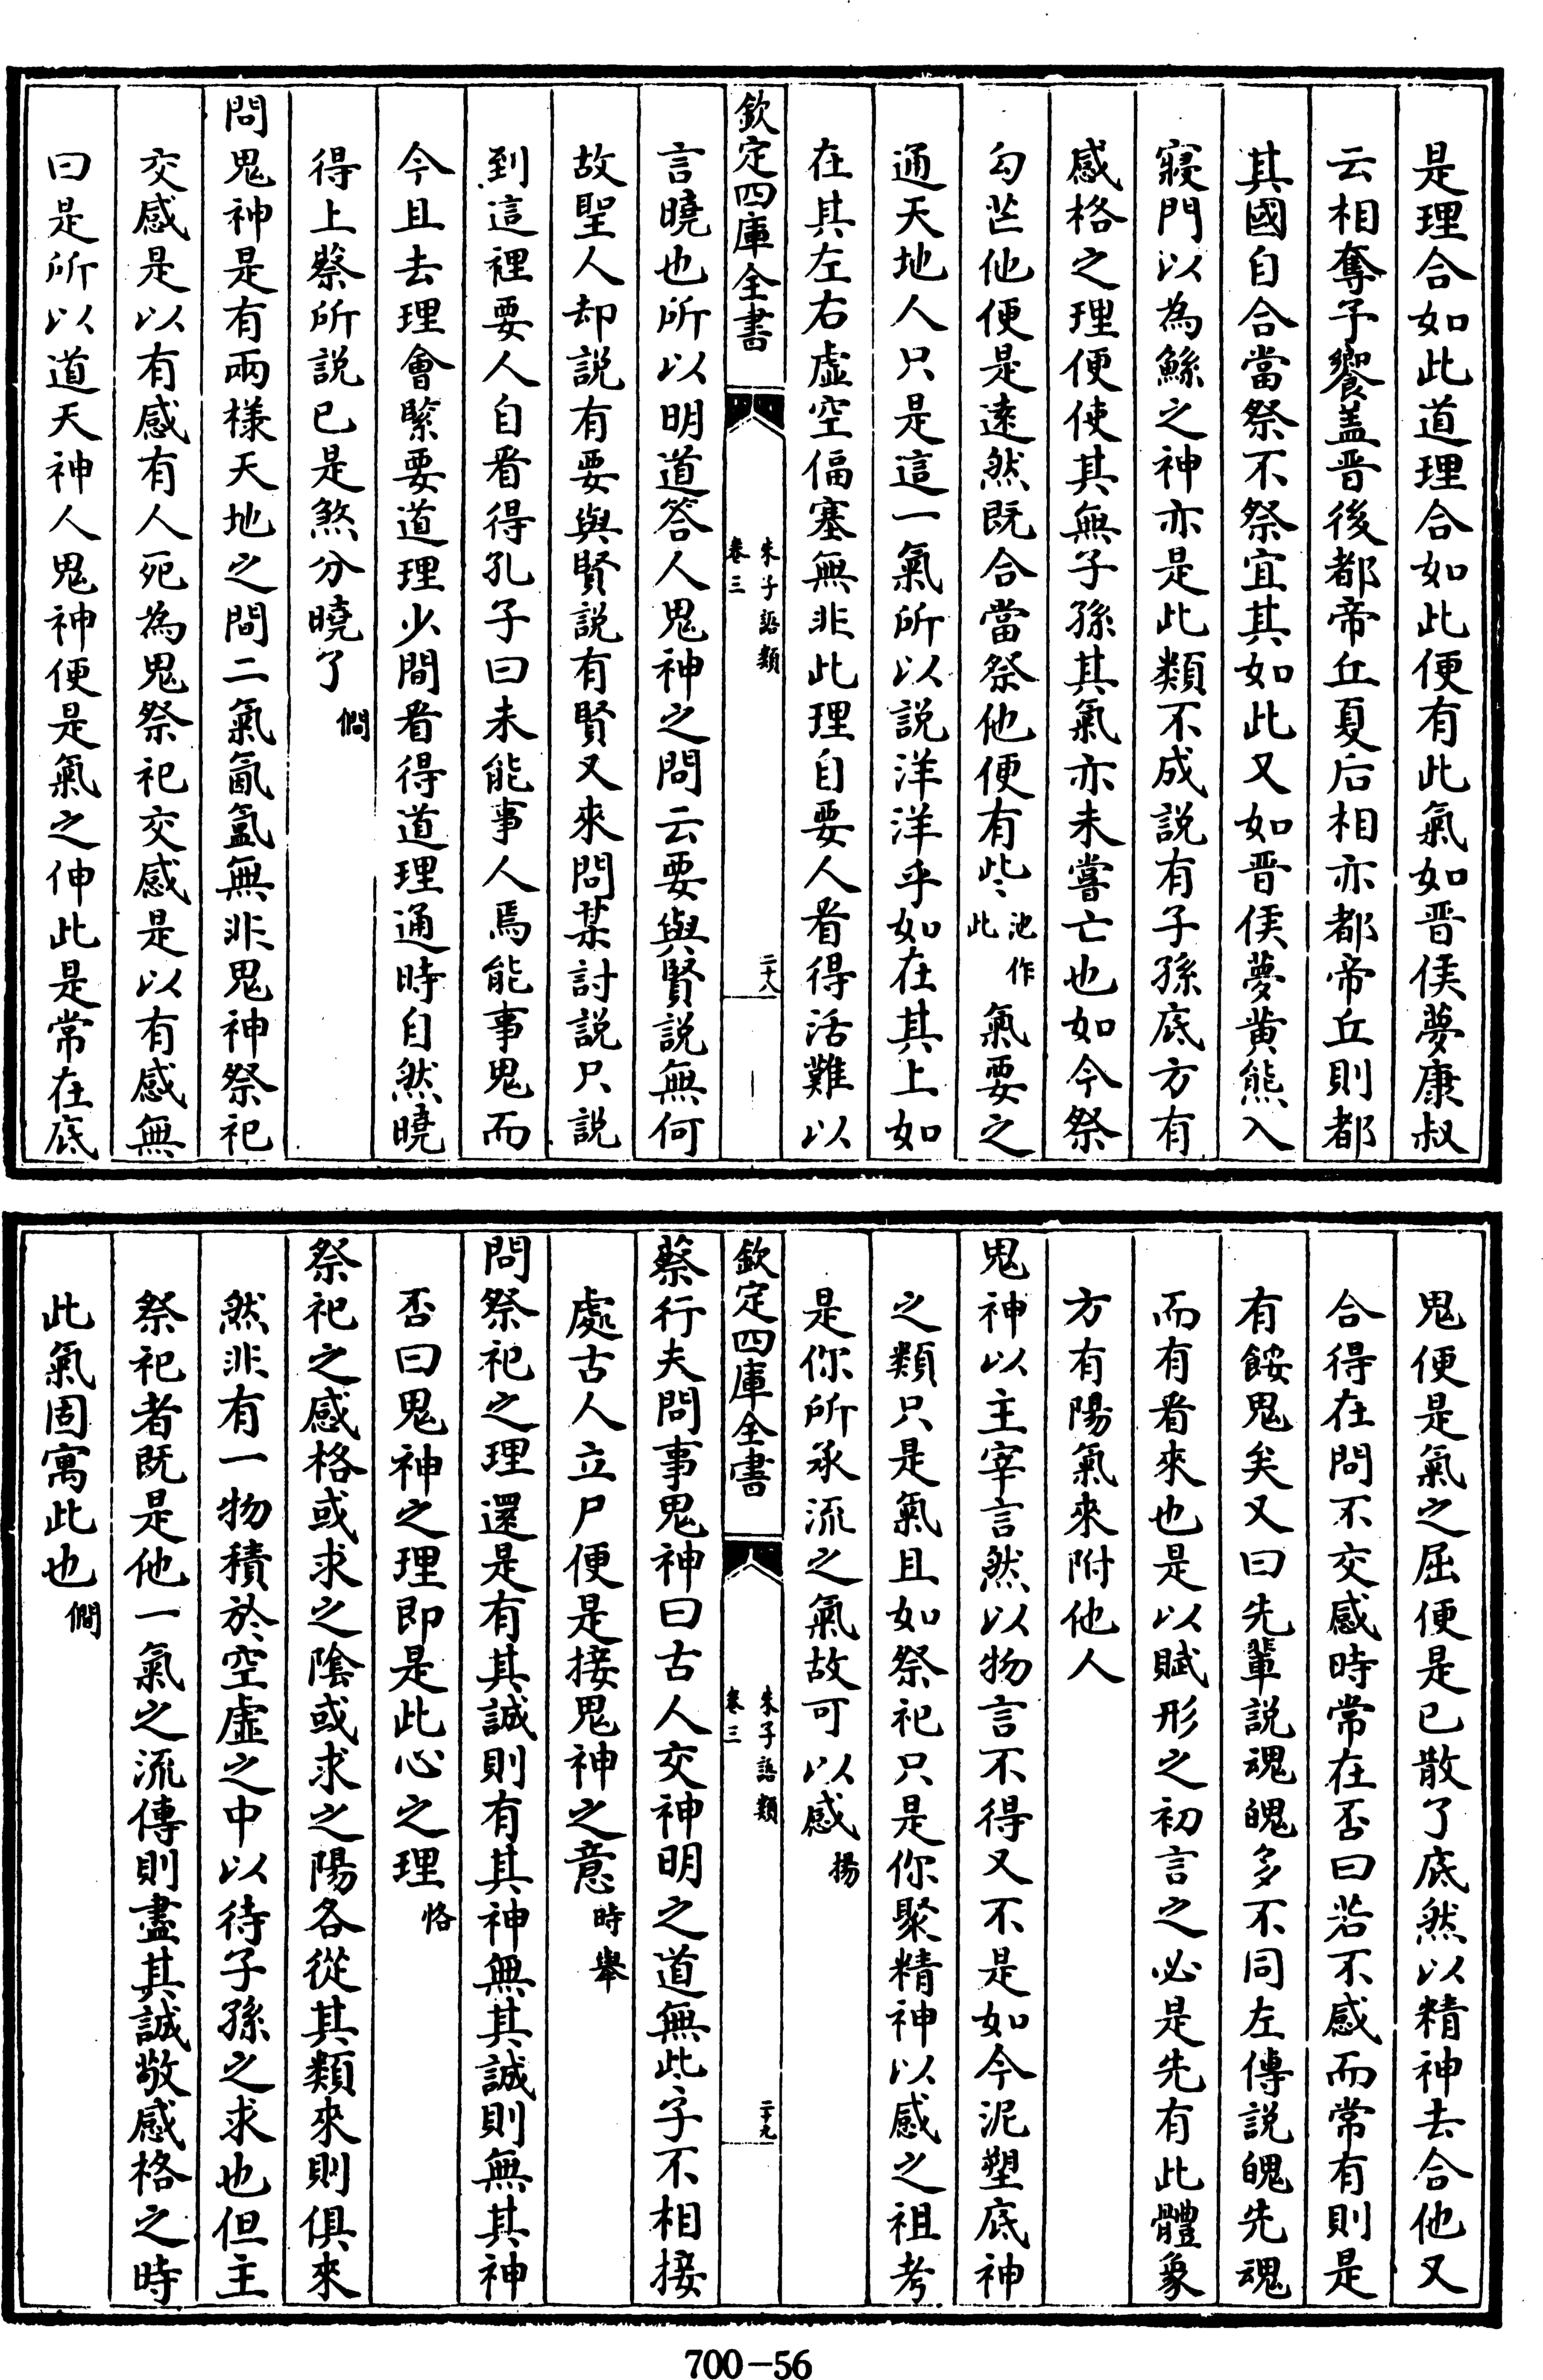 是理合如此道理合如此便有此氣如晋侯夢康叔
云相奪予饗盖晋後都帝丘夏后相亦都帝丘則都
其國自合當祭不祭宜其如此又如晋侯夢黄熊入
寝門以為鯀之神亦是此類不成説有子孫底方有
感格之理便使其無子孫其氣亦未嘗亡也如今祭
勾芒他便是逺然既合當祭他便有些池作此氣要之
通天地人只是這一氣所以説洋洋乎如在其上如
在其左右虚空偪塞無非此理自要人看得活難以
欽定四庫全書 朱子語類 卷三 二十八
言曉也所以明道答人鬼神之問云要與賢説無何
故聖人却説有要與賢説有賢又來問某討説只説
到這裡要人自看得孔子曰未能事人焉能事鬼而
今且去理會緊要道理少間看得道理通時自然曉
得上蔡所説已是煞分曉了 僩
問鬼神是有兩様天地之間二氣氤氲無非鬼神祭祀
交感是以有感有人死為鬼祭祀交感是以有感無
曰是所以道天神人鬼神便是氣之伸此是常在底
鬼便是氣之屈便是已散了底然以精神去合他又
合得在問不交感時常在否曰若不感而常有則是
有餒鬼矣又曰先輩説魂魄多不同左傳説魄先魂
而有看來也是以賦形之初言之必是先有此體象
方有陽氣來附他人
鬼神以主宰言然以物言不得又不是如今泥塑底神
之類只是氣且如祭祀只是你聚精神以感之祖考
是你所承流之氣故可以感 揚
欽定四庫全書 朱子語類 卷三 二十九
蔡行夫問事鬼神曰古人交神明之道無些子不相接
處古人立尸便是接鬼神之意 時舉
問祭祀之理還是有其誠則有其神無其誠則無其神
否曰鬼神之理即是此心之理 恪
祭祀之感格或求之陰或求之陽各從其類來則俱來
然非有一物積於空虚之中以待子孫之求也但主
祭祀者既是他一氣之流傳則盡其誠敬感格之時
此氣固寓此也 僩
700-56